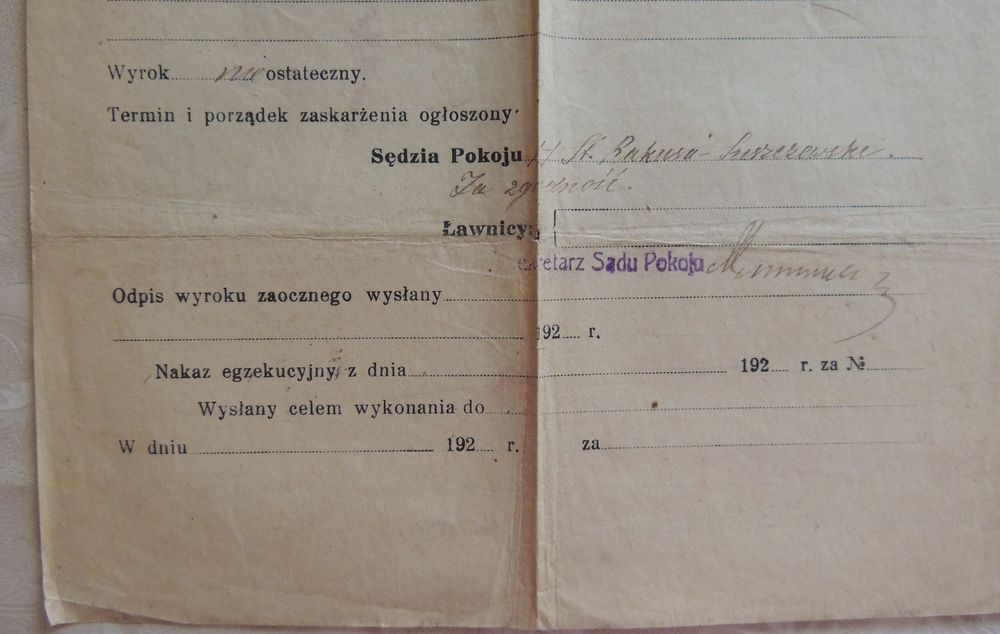 Wyrok nieostateczny.
Termin i porządek zaskarżenia ogłoszony
Sędzia Pokoju /-/ St. Rakusa-Suszczewski.
Za zgodność.
Ławnicy:
Sekretarz Sądu Pokoju
Odpis wyroku zaocznego wysłany
192 r.
Nakaz egzekucyjny z dnia 192 r. za №
Wysłany celem wykonania do
W dniu 192 r. za